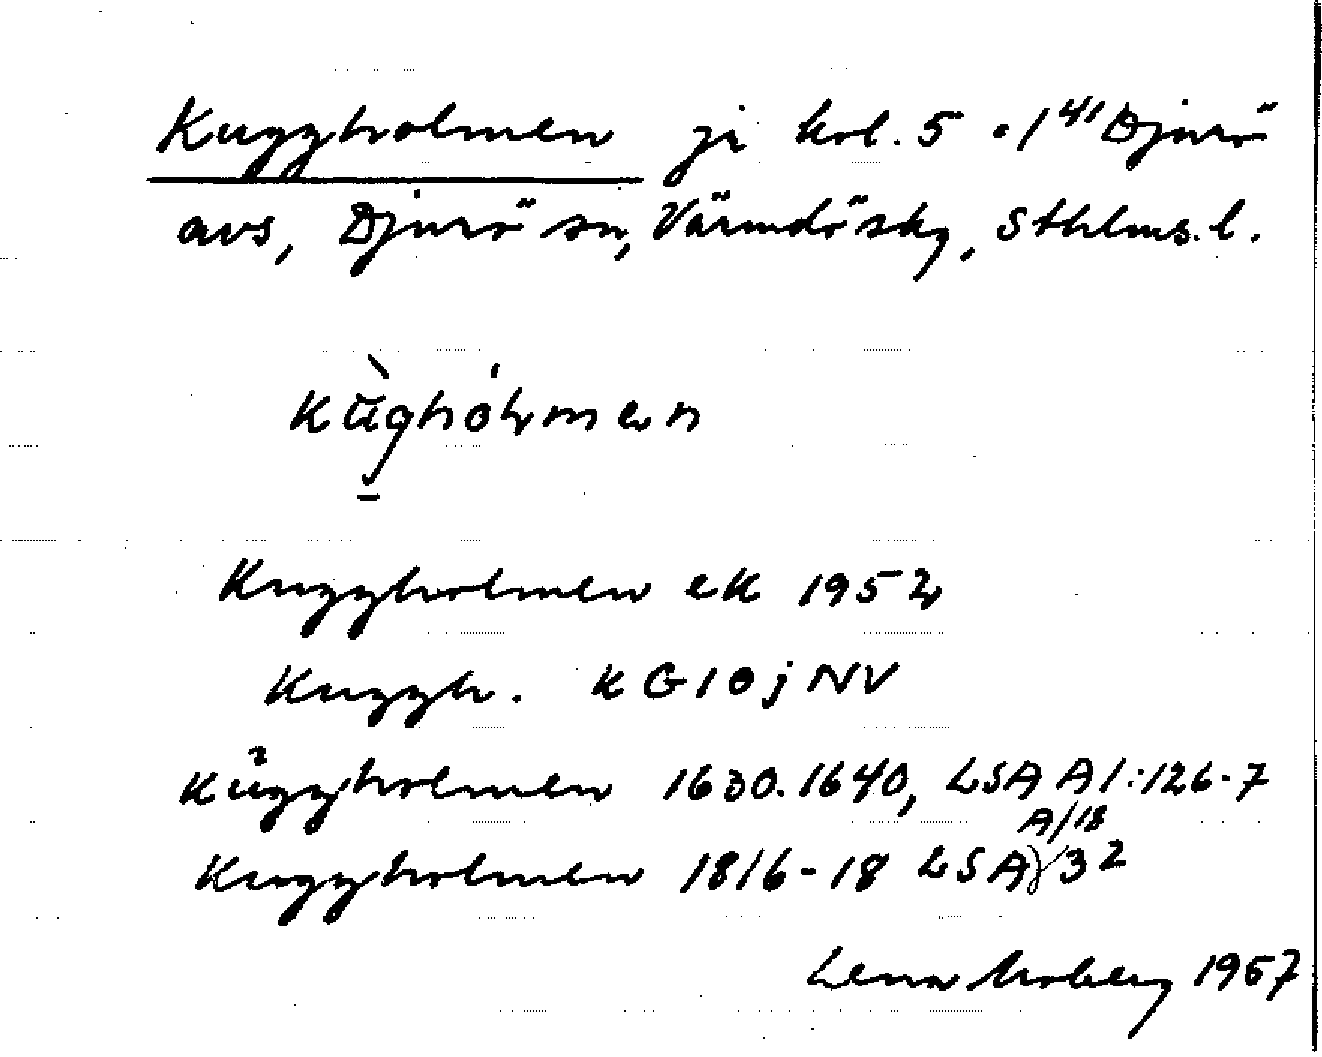 Kuggholmen på kol. 5 • 1⁴¹ Djurö
avs, Djurö sn, Värmdö sky, Sthlms. l.
Kuggholmen ek 1952
Kuggh. KG10jNV
Kůggholmen 1630.1640, LSA A1:126-7
A/18
Kuggholmen 1816-18 LSA 3²
Lena Moberg 1967